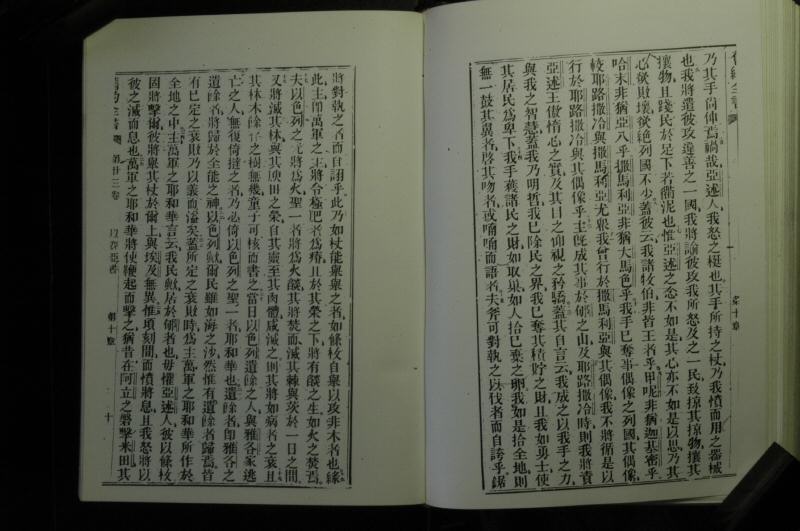 乃其手尚伸焉禍哉亞述人我怒之梃也其手所持之杖乃我憤而用之器械
也我將遣彼攻違善之一國我將諭彼攻我所怒及之一民致掠其掠物攘其
攘物且踐民於足下若衢泥也惟亞述之念不如是其心亦不如是以思乃其
心欲敗壞欲絕列國不少蓋彼云我諸牧伯非皆王者乎甲呢非猶迦基密乎
哈末非猶亞八乎撒馬利亞非猶大馬色乎我手已奪事偶像之列國其偶像
較耶路撒冷與撒馬利亞尤艱我曾行於撒馬利亞與其偶像我不將循是以
行於耶路撒冷與其偶像乎主既成其事於郇之山及耶路撒冷時則我將責
亞述王傲惰心之實及其目之仰視之矜驕蓋其自言云我成之以我手之力
與我之智慧蓋我乃明哲我已除民之界我已奪其積貯之財且我如勇士使
其居民為卑下我手獲諸民之財如取巢如人拾已棄之卵我如是拾全地則
無一鼓其翼者啓其吻者或喃喃而語者夫斧可對執之以伐者而自誇乎鋸
第十章
將對執之者而自詡乎此乃如杖能舉舉之者如條枚自舉以攻非木者也緣
此主卽萬軍之主將令極肥者為瘠且於其榮之下將有燄之生如火之焚焉
夫以色列之光將為火聖一者將為火燄其將焚而滅其棘與茨於一日之間
又將滅其林與其腴田之榮自其靈至其肉體咸滅之則其將如病者之衰且
其林木餘存之樹無幾童子可核而書之當日以色列遺餘之人與雅各家逃
亡之人無復倚撻之者乃必倚以色列之聖一者耶和華也遺餘者卽雅各之
遺餘者將歸於全能之神以色列歟爾民雖如海之沙然惟有遺餘者歸焉昔
有已定之衰敗乃以義而溢矣蓋所定之衰敗時為主萬軍之耶和華所作於
全地之中主萬軍之耶和華言云我民歟居於郇者也毋懼亞述人彼以條枚
因將擊爾彼將舉其杖於爾上與埃及無異惟頃刻間而憤將息且我怒將以
彼之滅而息也萬軍之耶和華將使鞭起而擊之猶昔在阿立之磐擊米田其
舊約全書 第廿三卷 以賽亞書 第十章 十